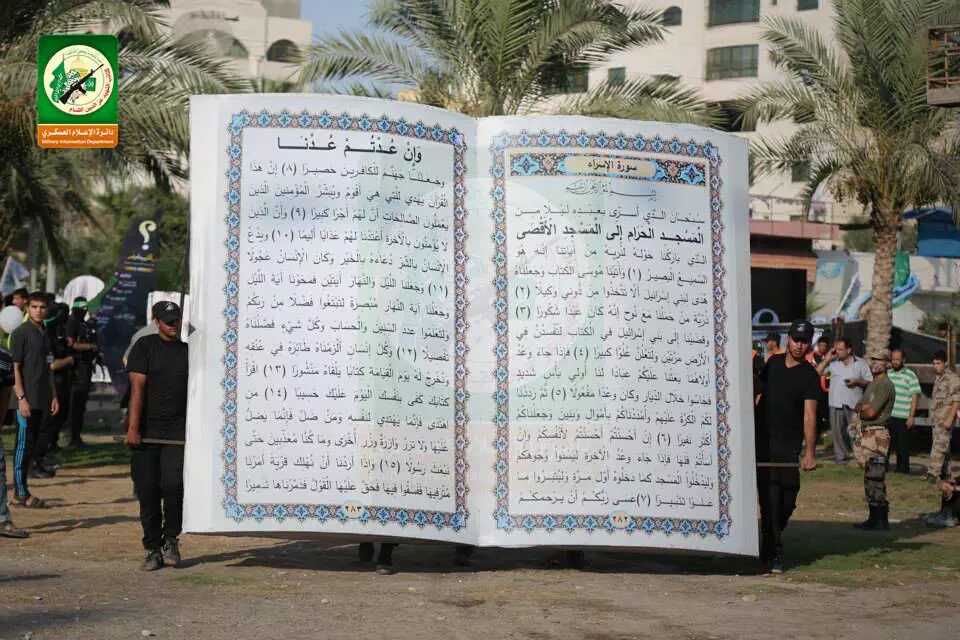 دائرة الإعلام العسكري
Military Information Department
سورة الإسراء
سبحان الذي أسرى بعبده ليلا من
المسجد الحرام إلى المسجد الأقصى
الذي باركنا حوله لنريه من آياتنا إنه هو
السميع البصير (١) وآتينا موسى الكتاب وجعلناه
هدى لبني إسرائيل ألا تتخذوا من دوني وكيلا (٢)
ذرية من حملنا مع نوح إنه كان عبدا شكورا (٣)
وقضينا إلى بني إسرائيل في الكتاب لتفسدن في
الأرض مرتين ولتعلن علوا كبيرا (٤) فإذا جاء وعد
أولاهما بعثنا عليكم عبادا لنا أولي بأس شديد
فجاسوا خلال الديار وكان وعدا مفعولا (٥) ثم رددنا
لكم الكرة عليهم وأمددناكم بأموال وبنين وجعلناكم
أكثر نفيرا (٦) إن أحسنتم أحسنتم لأنفسكم وإن
أسأتم فلها فإذا جاء وعد الآخرة ليسئوا وجوهكم
وليدخلوا المسجد كما دخلوه أول مرة وليتبروا ما
علوا تتبيرا (٧) عسى ربكم أن يرحمكم
٢٨٢
وإن عدتم عدنا
وجعلنا جهنم للكافرين حصيرا (٨) إن هذا
القرآن يهدي للتي هي أقوم ويبشر المؤمنين الذين
يعملون الصالحات أن لهم أجرا كبيرا (٩) وأن الذين
لا يؤمنون بالآخرة أعتدنا لهم عذابا أليما (١٠) ويدع
الإنسان بالشر دعاءه بالخير وكان الإنسان عجولا
(١١) وجعلنا الليل والنهار آيتين فمحونا آية الليل
وجعلنا آية النهار مبصرة لتبتغوا فضلا من ربكم
ولتعلموا عدد السنين والحساب وكل شيء فصلناه
تفصيلا (١٢) وكل إنسان ألزمناه طائره في عنقه
ونخرج له يوم القيامة كتابا يلقاه منشورا (١٣) اقرأ
كتابك كفى بنفسك اليوم عليك حسيبا (١٤) من
اهتدى فإنما يهتدي لنفسه ومن ضل فإنما يضل
عليها ولا تزر وازرة وزر أخرى وما كنا معذبين حتى
نبعث رسولا (١٥) وإذا أردنا أن نهلك قرية أمرنا
مترفيها ففسقوا فيها فحق عليها القول فدمرناها تدميرا
٢٨٣